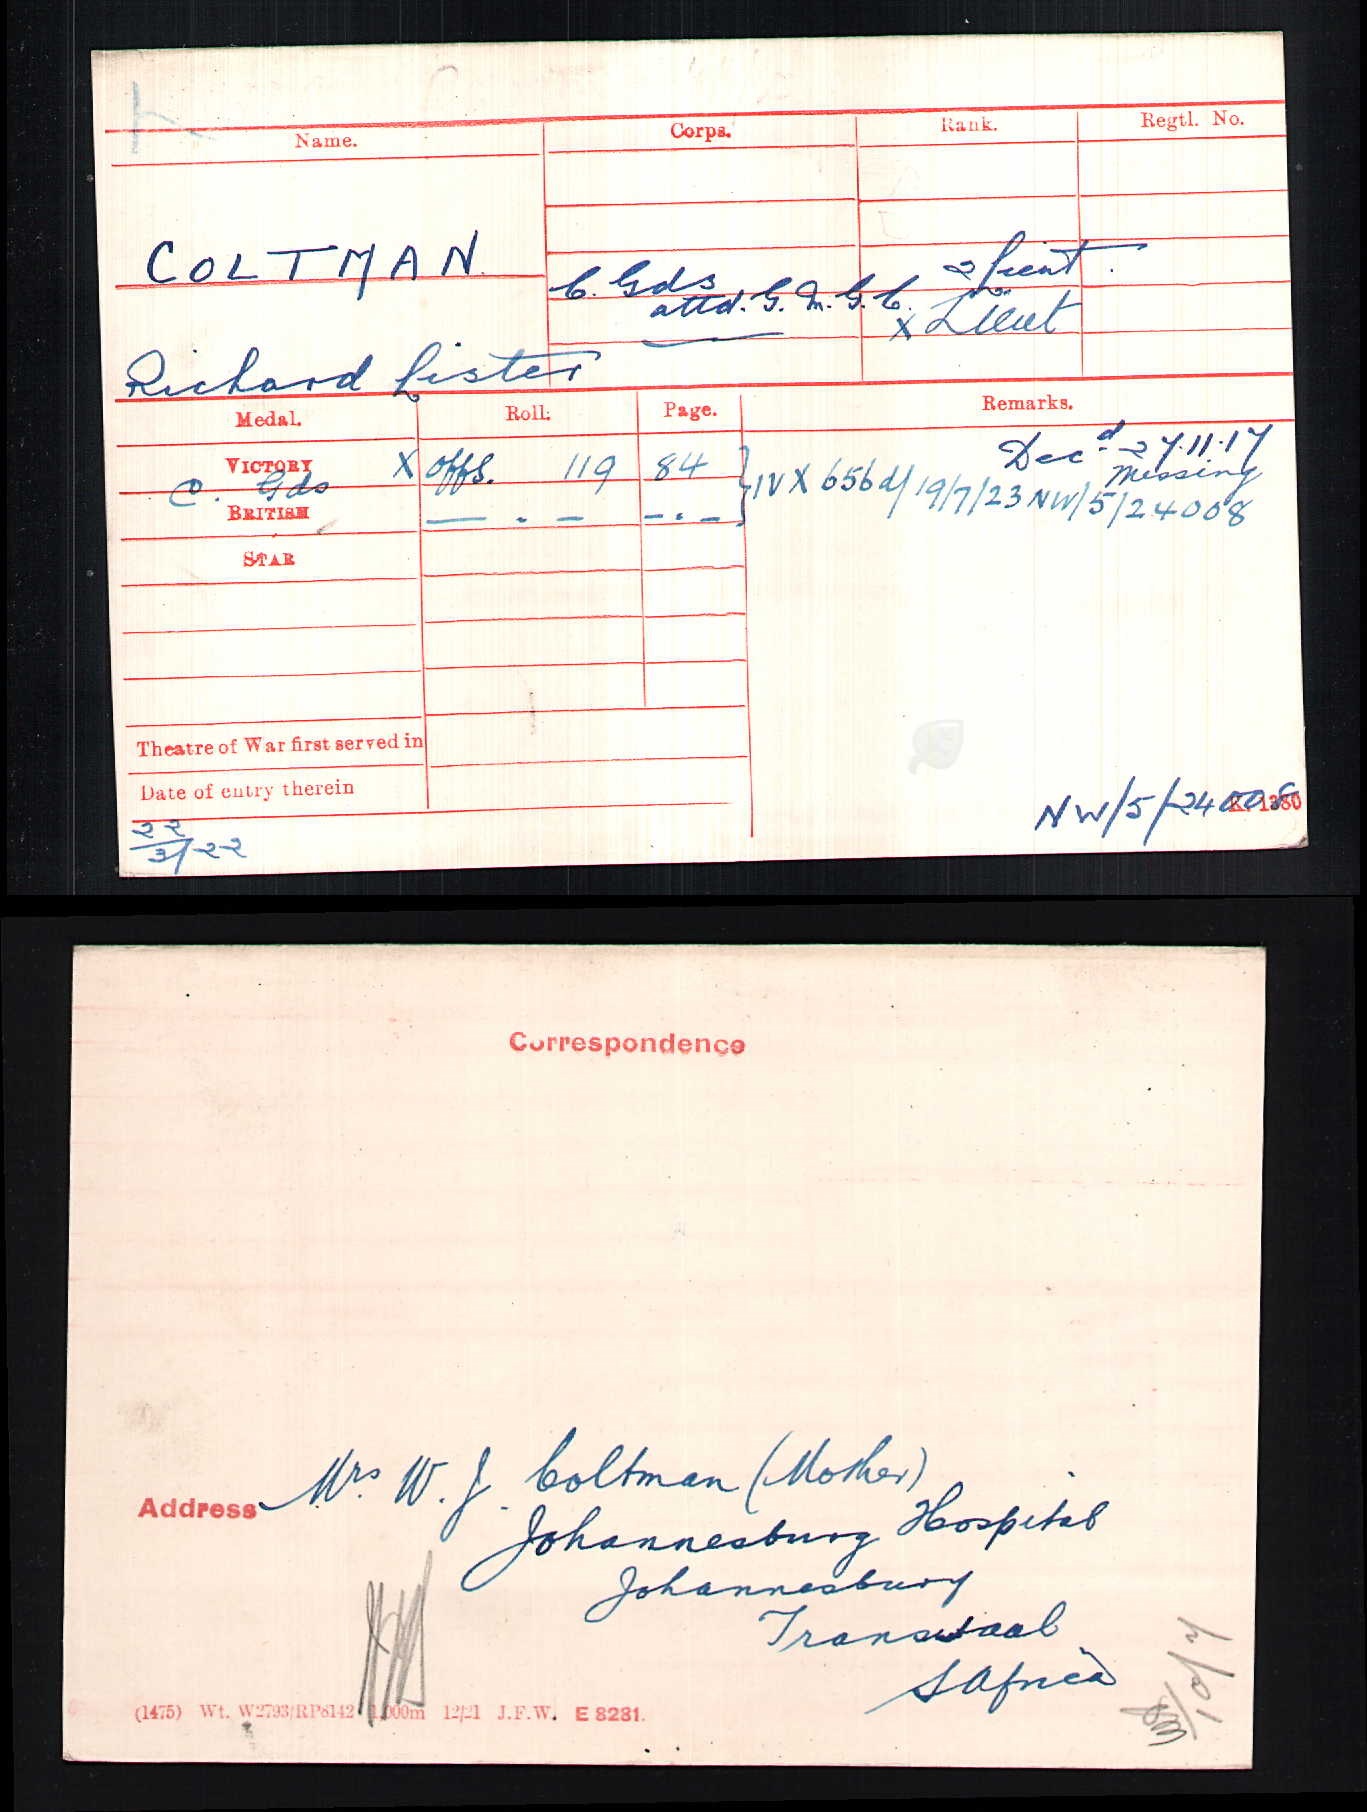 Name. Corps. Rank. Regtl. No.
COLTMAN
C. Gds 2 Lieut.
attd. G. M. G. C. X Lieut
Richard Lister
Medal. Roll. Page. Remarks.
Decd. 27.11.17
VICTORY X Offs. 119 84 Missing
C. Gds } IV X 656d/ 19/7/23 NW/5/24008
BRITISH — . — — . —
STAR
Theatre of War first served in
Date of entry therein
NW/5/24008 K. 1380
22/3/22
Correspondence
Address Mrs. W. J. Coltman (Mother)
Johannesburg Hospital
Johannesburg
Transvaal
S Africa
(1475) Wt. W2793/RP8142 1,000m 12/21 J.F.W. E 8281.